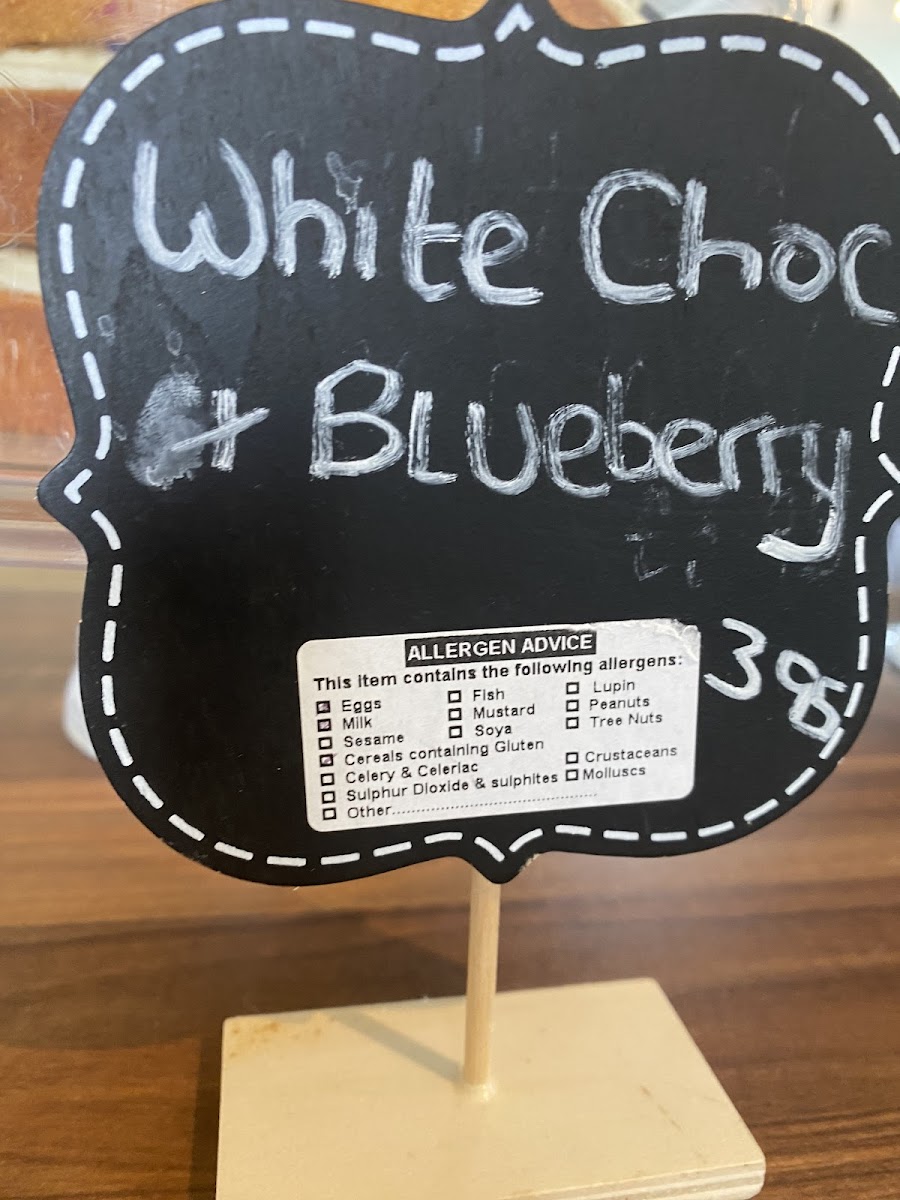 White Choc
+ Blueberry
ALLERGEN ADVICE
This item contains the following allergens:
Eggs Fish Lupin
Milk Mustard Peanuts
Sesame Soya Tree Nuts
Cereals containing Gluten Crustaceans
Celery & Celeriac Molluscs
Sulphur Dioxide & sulphites
Other..........................................